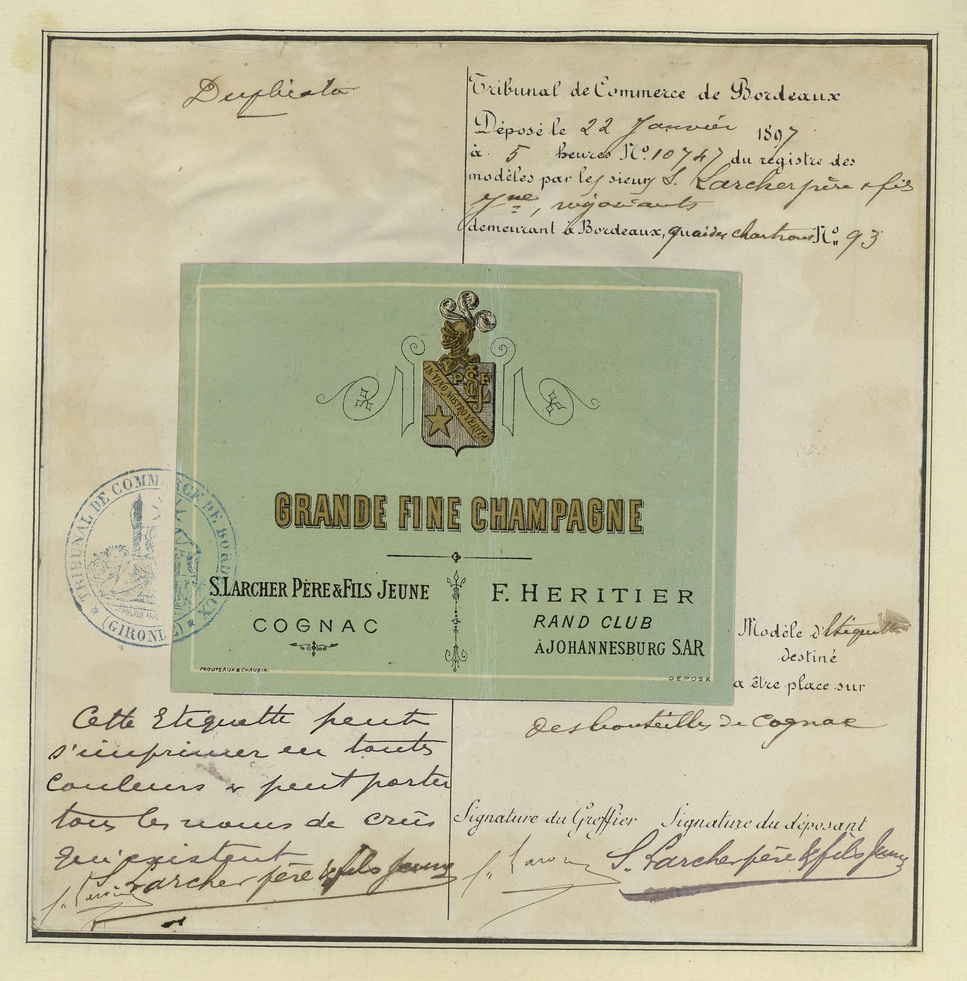 Duplicata
Tribunal de Commerce de Bordeaux
Déposé le 22 Janvier 1897
à 5 heures No. 10747 du registre des
modèles par les sieurs S. Larcher père & fils
Jne, négociants
demeurant à Bordeaux, quai des chartrons No. 93
IN VINO NOSTRO VERITAS
GRANDE FINE CHAMPAGNE
S. LARCHER PÈRE & FILS JEUNE
COGNAC
F. HERITIER
RAND CLUB
À JOHANNESBURG S.A.R
PROUTEAUX & CHAUBIN.
DEPOSÉ
TRIBUNAL DE COMMERCE DE BORDEAUX
(GIRONDE)
Modèle d'étiquette
destiné
a être place sur
des bouteilles de Cognac
Cette Etiquette peut
s'imprimer en toutes
couleurs & peut porter
tous les noms de crûs
qui existent
S. Larcher père & fils Jeune
Signature du Greffier Signature du déposant
S. Larcher père & fils Jeune